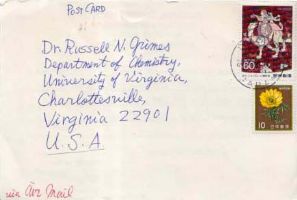 POST CARD
Dr. Russell N. Grimes
Department of Chemistry,
University of Virginia,
Charlottesville,
Virginia 22901
U.S.A.
60
10
日本郵便
via Air Mail